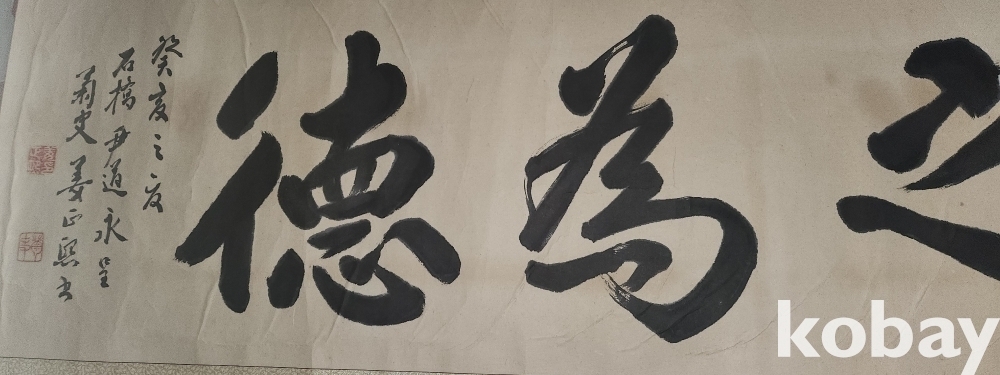 之為德
癸亥之夏
石橋尹道永呈
菊史姜正熙書
kobay